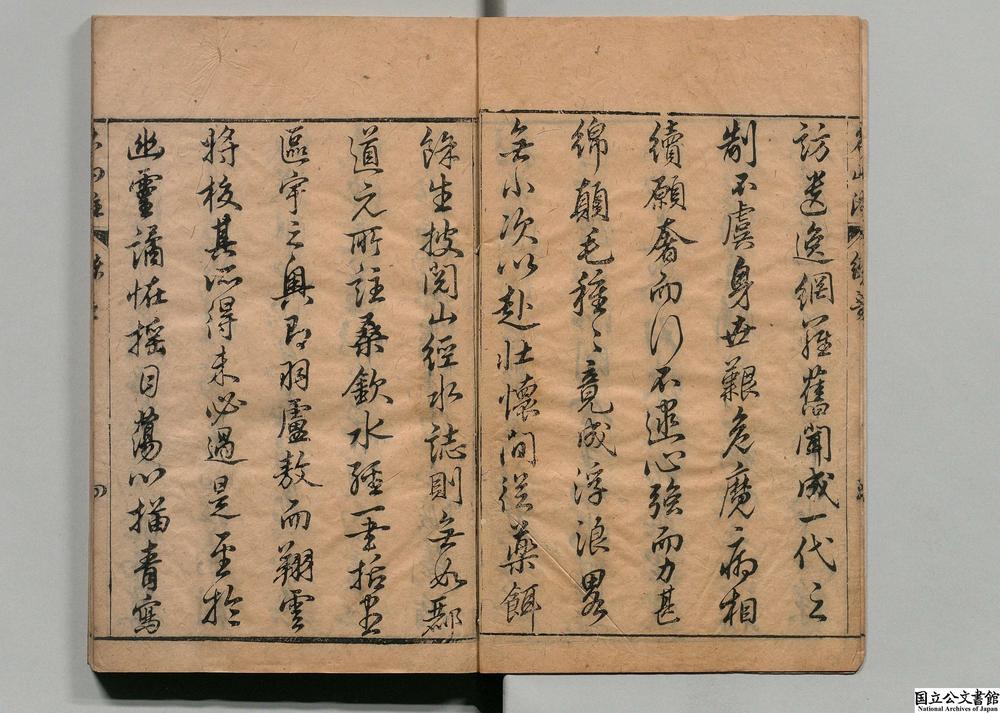 訪遺逸網羅舊聞成一代之
制不虞身世艱危魔病相
續願奢而行不逮心強而力甚
綿顛毛種〻竟成浮浪畧
無小次以赴壯懷間從藥餌
餘生披閱山經水誌則無如酈
道元所註桑欽水經一垂括盡
區宇之奧即羽廬敖而翔雲
將校其所得未必過是至於
幽靈譎恠搖目蕩心描青寫
国立公文書館
National Archives of Japan